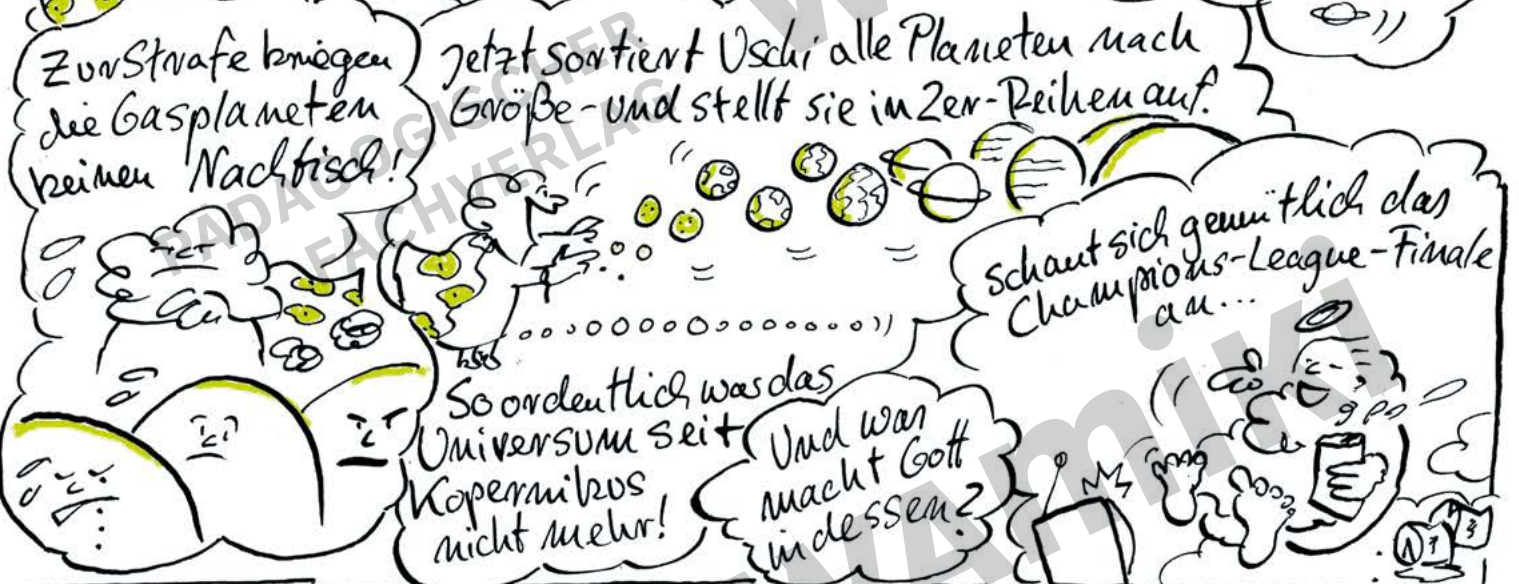 Zur Strafe kriegen
die Gasplaneten
keinen Nachtisch!
Jetzt sortiert Uschi alle Planeten nach
Größe - und stellt sie in 2er-Reihen auf.
So ordentlich war das
Universum seit
Kopernikus
nicht mehr!
Und was
macht Gott
indessen?
Schaut sich gemütlich das
Champions-League-Finale
an...
PÄDAGOGISCHER
FACHVERLAG
wamiki